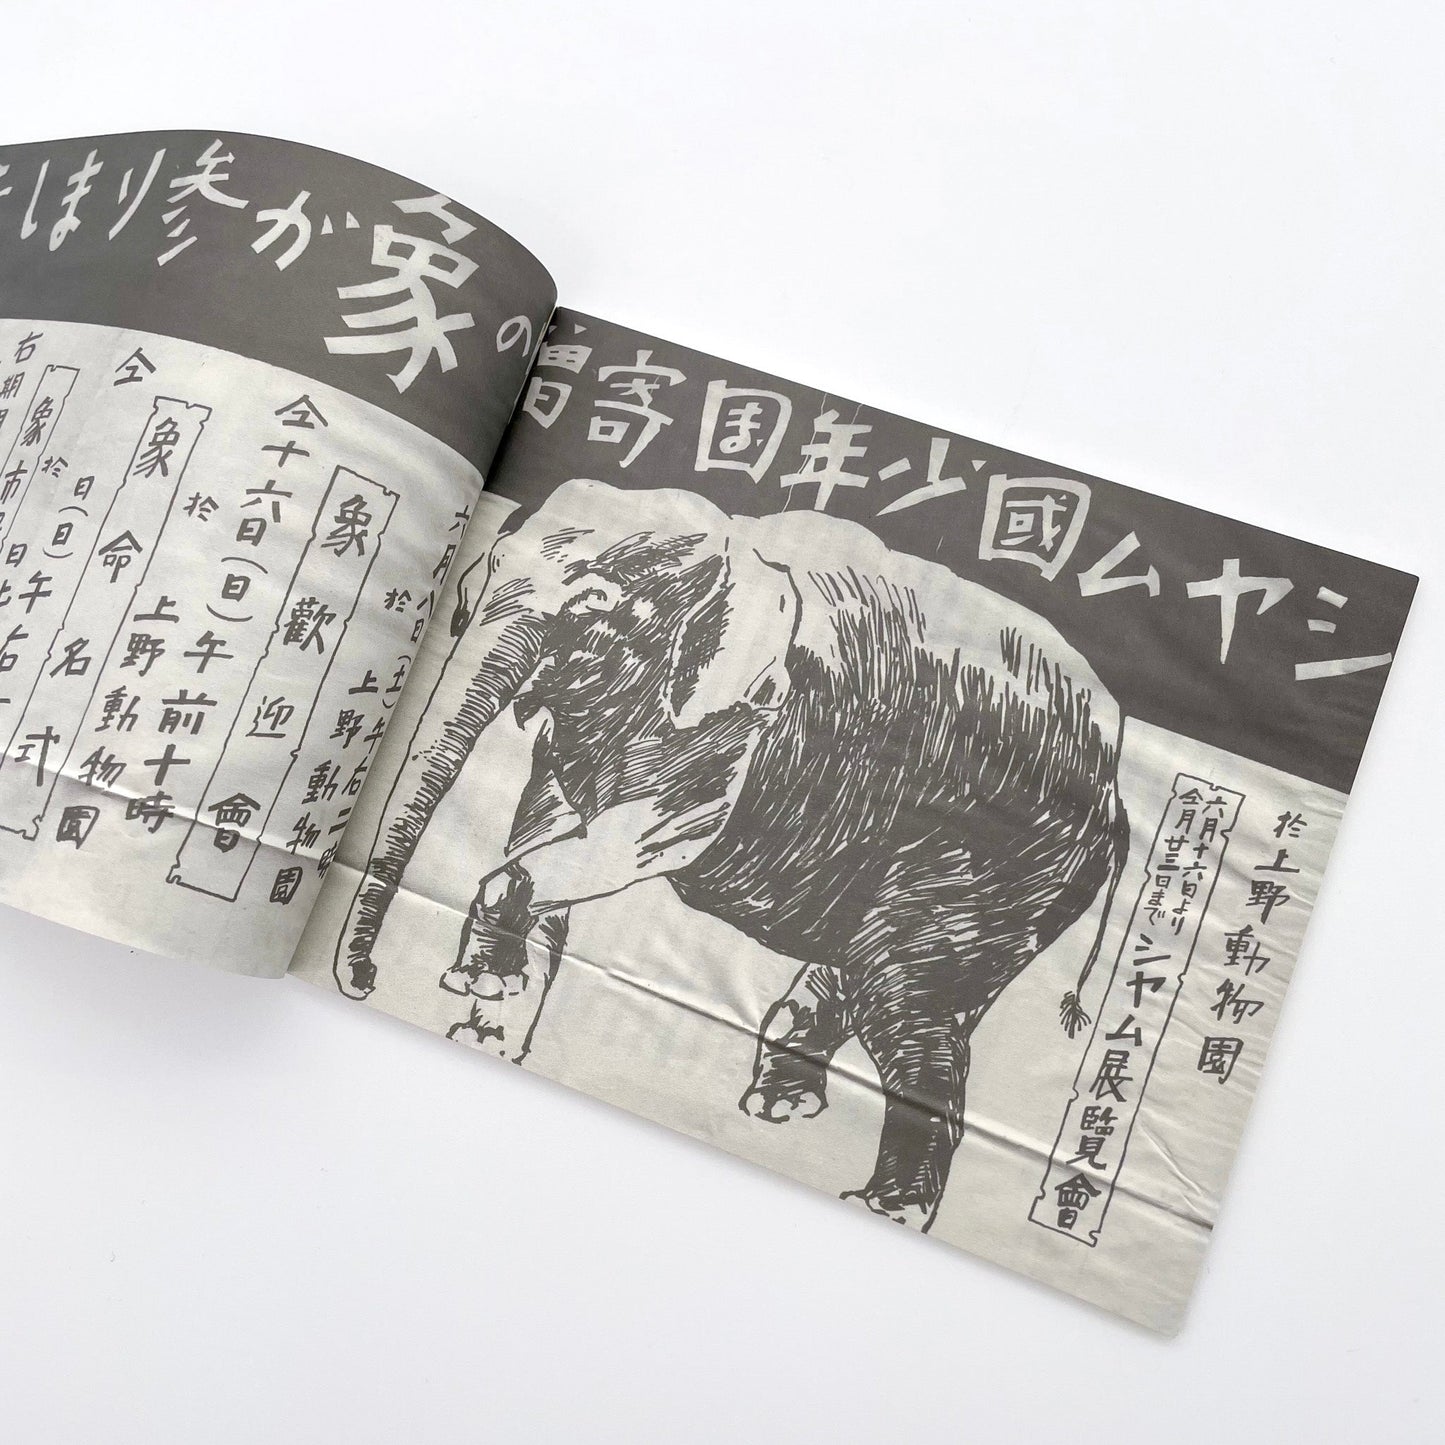 シヤム國少年團寄贈の
象が参りまし
於上野動物園
六月十六日より
仝月廿三日まで
シヤム展覽會
六月八日(土)午后二時
於上野動物園
象歡迎會
仝十六日(日)午前十時
於上野動物園
象命名式
仝日(日)午
於日比
象市民
右期間